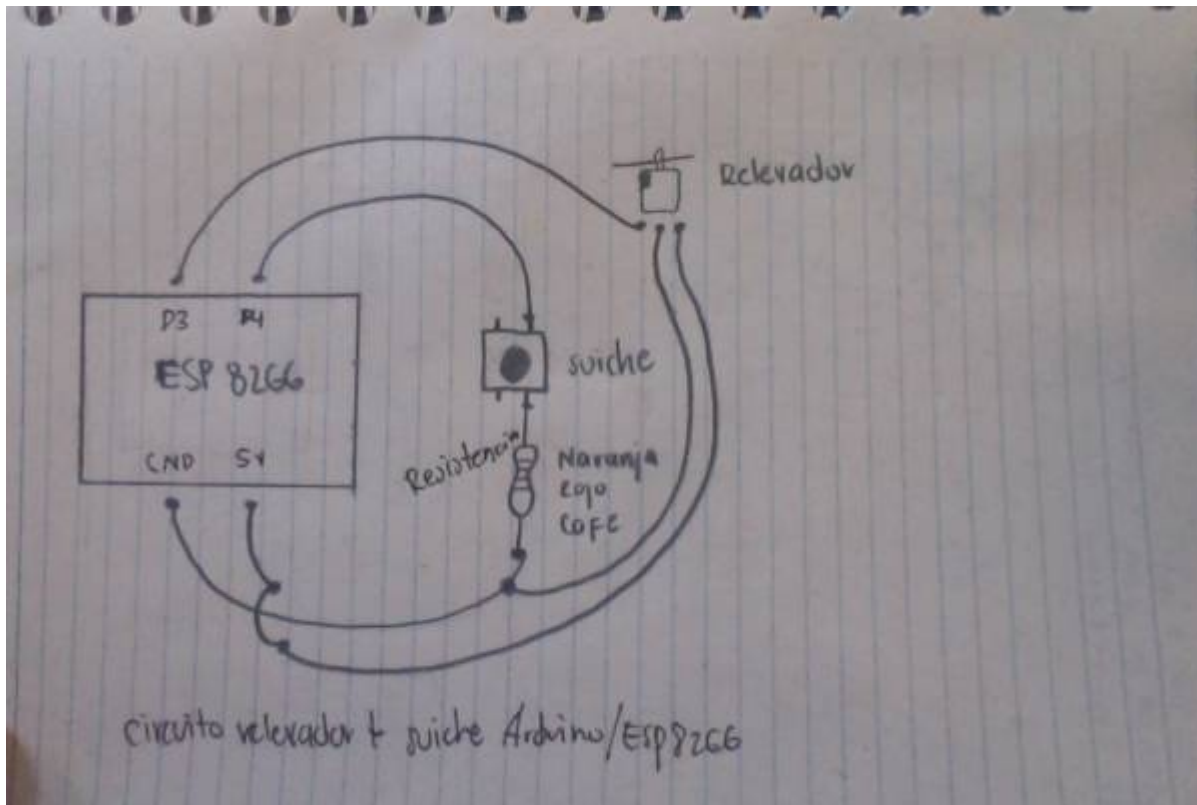 Relevador
D3 D4
ESP 8266
suiche
GND 5V
Resistencia
Naranja
Rojo
CAFE
circuito relevador + suiche Arduino/Esp8266